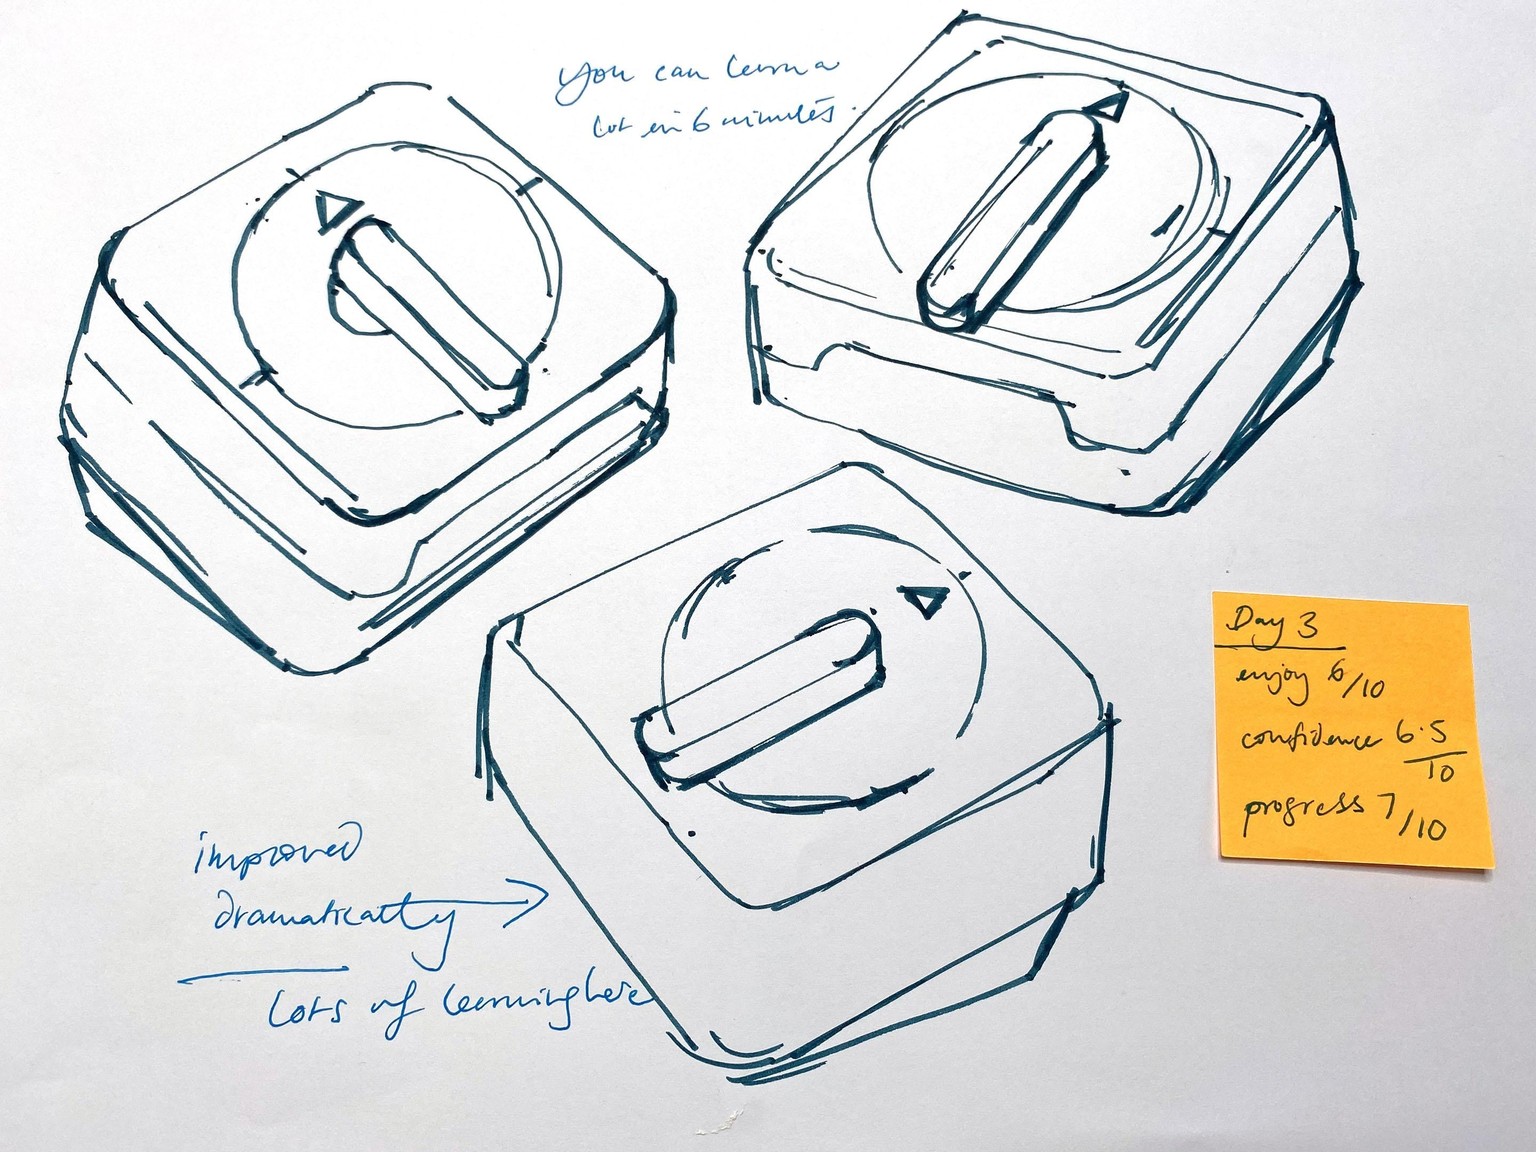 You can learn a
lot in 6 minutes.
improved
dramatically
lots of learning here
Day 3
enjoy 6/10
confidence 6.5
10
progress 7/10